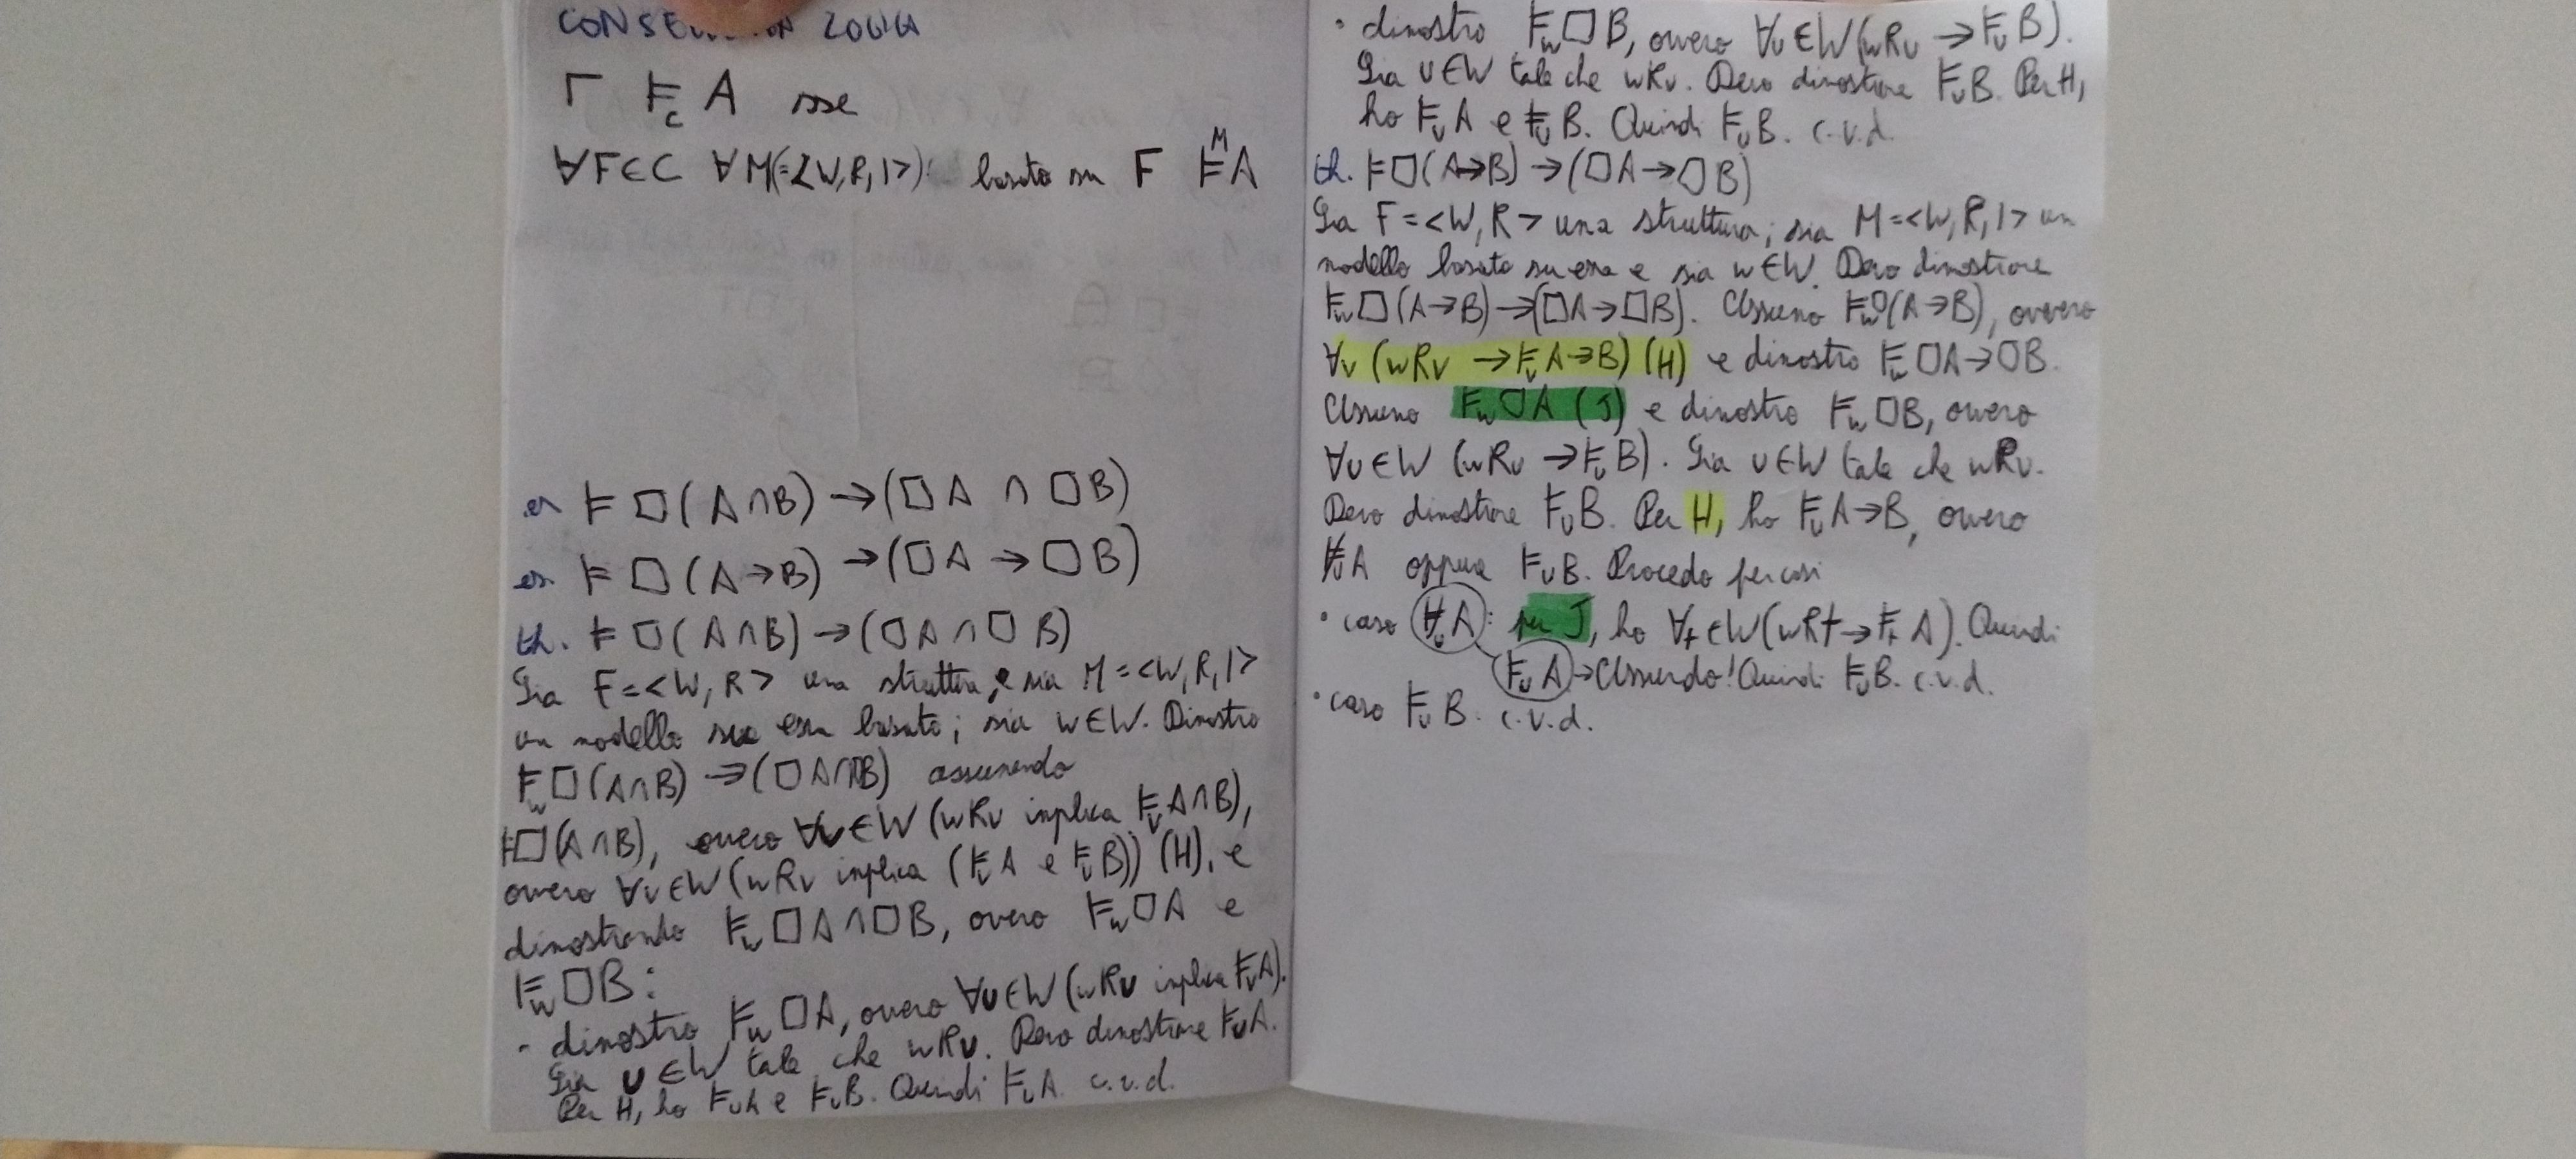 CONSE LOGICA
Γ ⊨c A sse
∀F∈C ∀M(=<W,R,I>) basato su F ⊨ᴹA
es ⊨ □(A∩B) → (□A ∩ □B)
es. ⊨ □(A→B) → (□A → □B)
th. ⊨ □(A∩B) → (□A ∩ □B)
Sia F=<W,R> una struttura, e sia M=<W,R,I>
un modello su essa basato; sia w∈W. Dimostro
⊨w□(A∩B) → (□A∩□B) assumendo
⊨□(A∩B), ovvero ∀v∈W (wRv implica ⊨vA∩B),
ovvero ∀v∈W (wRv implica (⊨vA e ⊨vB)) (H), e
dimostrando ⊨w□A∩□B, ovvero ⊨w□A e
⊨w□B:
- dimostro ⊨w□A, ovvero ∀u∈W (wRu implica ⊨uA).
Sia u∈W tale che wRu. Devo dimostrare ⊨uA.
Per H, ho ⊨uA e ⊨uB. Quindi ⊨uA. c.v.d.
· dimostro ⊨w□B, ovvero ∀u∈W(wRu → ⊨uB).
Sia u∈W tale che wRu. Devo dimostrare ⊨uB. Per H,
ho ⊨uA e ⊨uB. Quindi ⊨uB. c.v.d.
th. ⊨□(A→B) → (□A→□B)
Sia F=<W,R> una struttura; sia M=<W,R,I> un
modello basato su essa e sia w∈W. Devo dimostrare
⊨w□(A→B)→(□A→□B). Assumo ⊨w□(A→B), ovvero
∀v (wRv → ⊨vA→B) (H) e dimostro ⊨w□A→□B.
Assumo ⊨w□A (J) e dimostro ⊨w□B, ovvero
∀u∈W (wRu → ⊨uB). Sia u∈W tale che wRu.
Devo dimostrare ⊨uB. Per H, ho ⊨uA→B, ovvero
⊭uA oppure ⊨uB. Procedo per casi
· caso ⊭uA: per J, ho ∀t∈W(wRt → ⊨tA). Quindi
⊨uA → Assurdo! Quindi ⊨uB. c.v.d.
· caso ⊨uB. c.v.d.